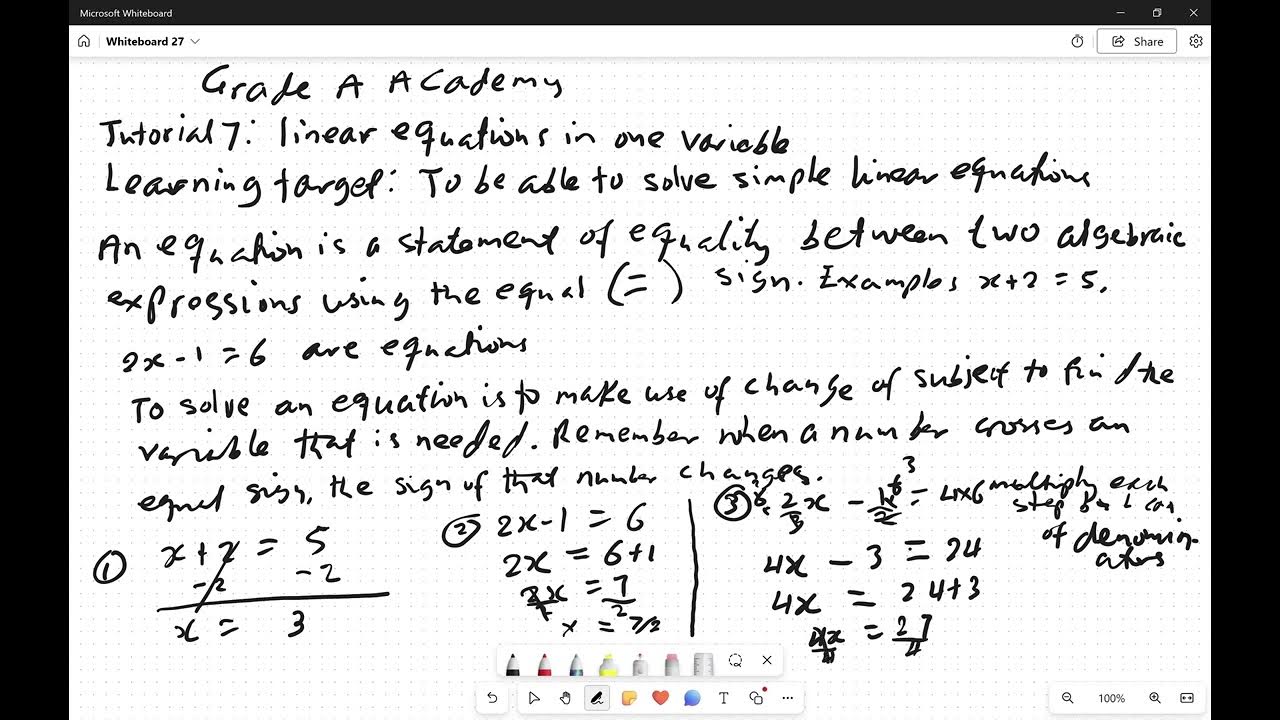 Microsoft Whiteboard
Whiteboard 27
Share
Grade A Academy
Tutorial 7: linear equations in one variable
Learning target: To be able to solve simple linear equations
An equation is a statement of equality between two algebraic
expressions using the equal (=) sign. Examples x+2 = 5,
2x-1 = 6 are equations
To solve an equation is to make use of change of subject to find the
variable that is needed. Remember when a number crosses an
equal sign, the sign of that number changes.
① x + 2 = 5
-2 -2
x = 3
② 2x-1 = 6
2x = 6+1
2x = 7
2
x = 7/2
③ 2/3 x - = 4x6 multiply each
step by L cm
of denomin-
ators
4x - 3 = 24
4x = 24+3
4x/4 = 27/4
T
100%